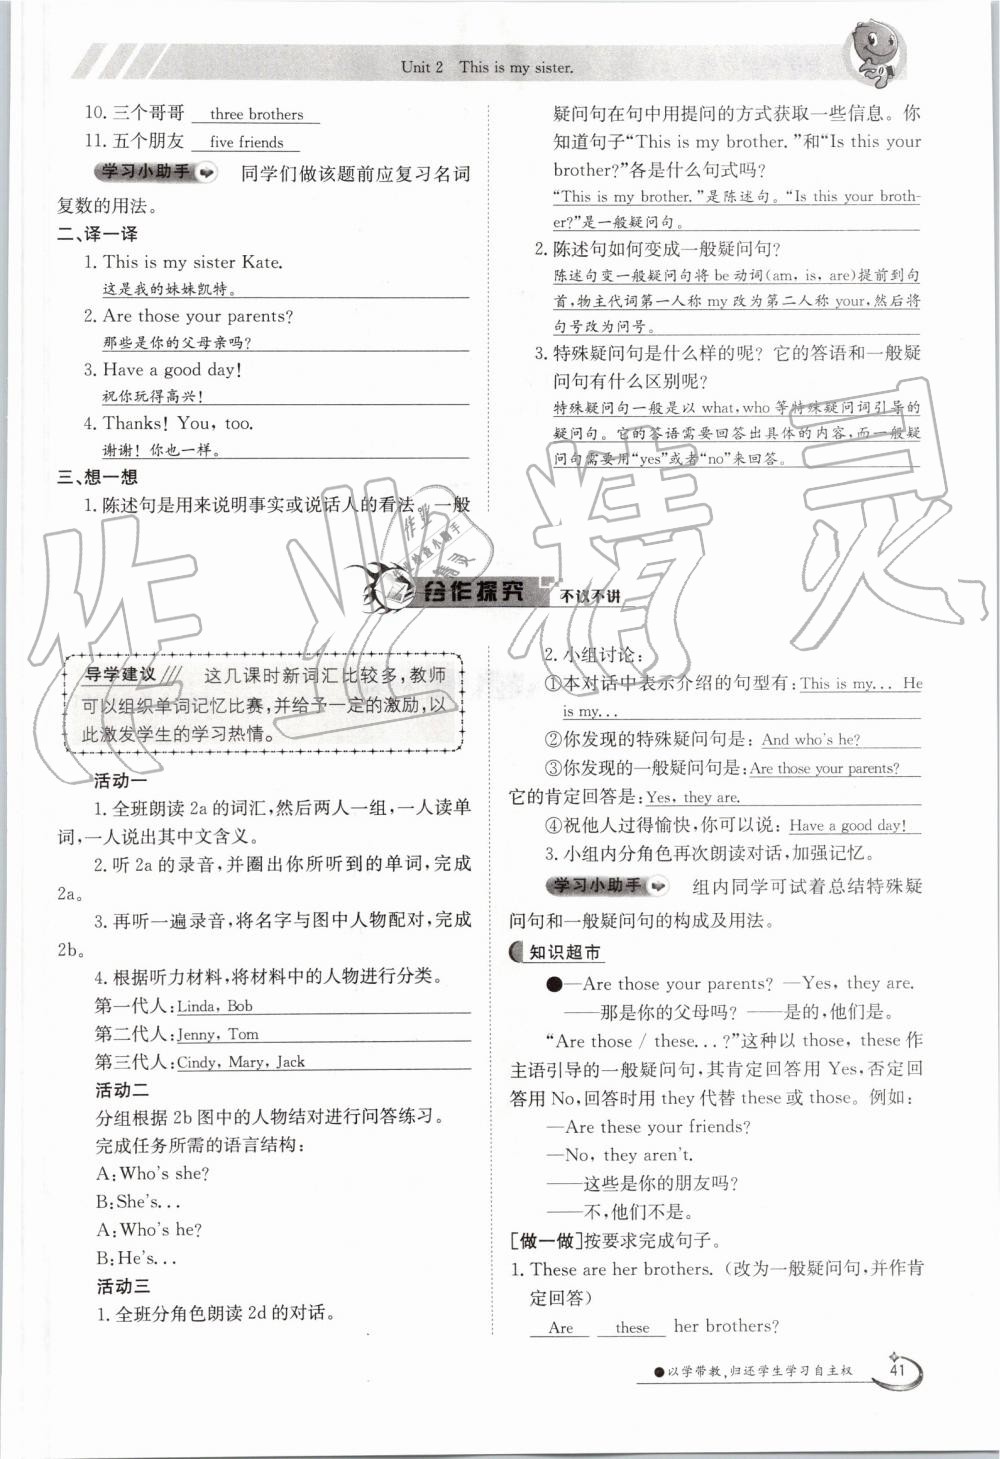 Unit 2 This is my sister.
10. 三个哥哥 three brothers
11. 五个朋友 five friends
学习小助手 同学们做该题前应复习名词
复数的用法。
二、译一译
1. This is my sister Kate.
这是我的妹妹凯特。
2. Are those your parents?
那些是你的父母亲吗?
3. Have a good day!
祝你玩得高兴!
4. Thanks! You, too.
谢谢! 你也一样。
三、想一想
1. 陈述句是用来说明事实或说话人的看法。一般
疑问句在句中用提问的方式获取一些信息。你
知道句子“This is my brother. ”和“Is this your
brother?”各是什么句式吗?
“This is my brother. ”是陈述句。“Is this your broth-
er?”是一般疑问句。
2. 陈述句如何变成一般疑问句?
陈述句变一般疑问句将 be 动词(am, is, are)提前到句
首,物主代词第一人称 my 改为第二人称 your,然后将
句号改为问号。
3. 特殊疑问句是什么样的呢? 它的答语和一般疑
问句有什么区别呢?
特殊疑问句一般是以 what, who 等特殊疑问词引导的
疑问句。它的答语需要回答出具体的内容,而一般疑
问句需要用“yes”或者“no”来回答。
合作探究 不议不讲
导学建议 这几课时新词汇比较多,教师
可以组织单词记忆比赛,并给予一定的激励,以
此激发学生的学习热情。
活动一
1. 全班朗读 2a 的词汇,然后两人一组,一人读单
词,一人说出其中文含义。
2. 听 2a 的录音,并圈出你所听到的单词,完成
2a。
3. 再听一遍录音,将名字与图中人物配对,完成
2b。
4. 根据听力材料,将材料中的人物进行分类。
第一代人:Linda, Bob
第二代人:Jenny, Tom
第三代人:Cindy, Mary, Jack
活动二
分组根据 2b 图中的人物结对进行问答练习。
完成任务所需的语言结构:
A:Who's she?
B:She's...
A:Who's he?
B:He's...
活动三
1. 全班分角色朗读 2d 的对话。
2. 小组讨论:
①本对话中表示介绍的句型有:This is my... He
is my...
②你发现的特殊疑问句是: And who's he?
③你发现的一般疑问句是:Are those your parents?
它的肯定回答是:Yes, they are.
④祝他人过得愉快,你可以说:Have a good day!
3. 小组内分角色再次朗读对话,加强记忆。
学习小助手 组内同学可试着总结特殊疑
问句和一般疑问句的构成及用法。
知识超市
●—Are those your parents? —Yes, they are.
——那是你的父母吗? ——是的,他们是。
“Are those / these...?”这种以 those, these 作
主语引导的一般疑问句,其肯定回答用 Yes,否定回
答用 No,回答时用 they 代替 these 或 those。例如:
—Are these your friends?
—No, they aren't.
——这些是你的朋友吗?
——不,他们不是。
[做一做]按要求完成句子。
1. These are her brothers. (改为一般疑问句,并作肯
定回答)
Are these her brothers?
●以学带教,归还学生学习自主权 41